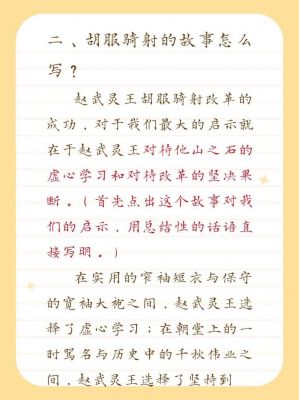 二、胡服骑射的故事怎么
写?
赵武灵王胡服骑射改革的
成功,对于我们最大的启示就
在于赵武灵王对待他山之石的
虚心学习和对待改革的坚决果
断。(首先点出这个故事对我
们的启示,用总结性的话语直
接写明。)
在实用的窄袖短衣与保守
的宽袖大袍之间,赵武灵王选
择了虚心学习;在朝堂上的一
时骂名与历史中的千秋伟业之
间,赵武灵王选择了坚持到